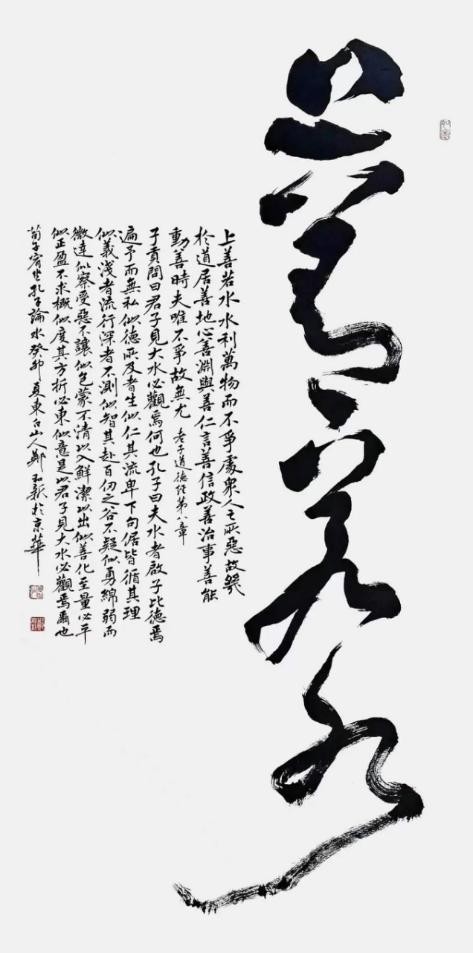 上善若水
上善若水水利萬物而不爭處衆人之所惡故幾
於道居善地心善淵與善仁言善信政善治事善能
動善時夫唯不爭故無尤 老子道德經第八章
子貢問曰君子見大水必觀焉何也孔子曰夫水者啟子比德焉
遍予而無私似德所及者生似仁其流卑下句倨皆循其理
似義淺者流行深者不測似智其赴百仞之谷不疑似勇綿弱而
微達似察受惡不讓似包蒙不清以入鮮潔以出似善化至量必平
似正盈不求概似度其万折必東似意是以君子見大水必觀焉爾也
荀子宥坐孔子論水 癸卯夏東白山人鄭於京華